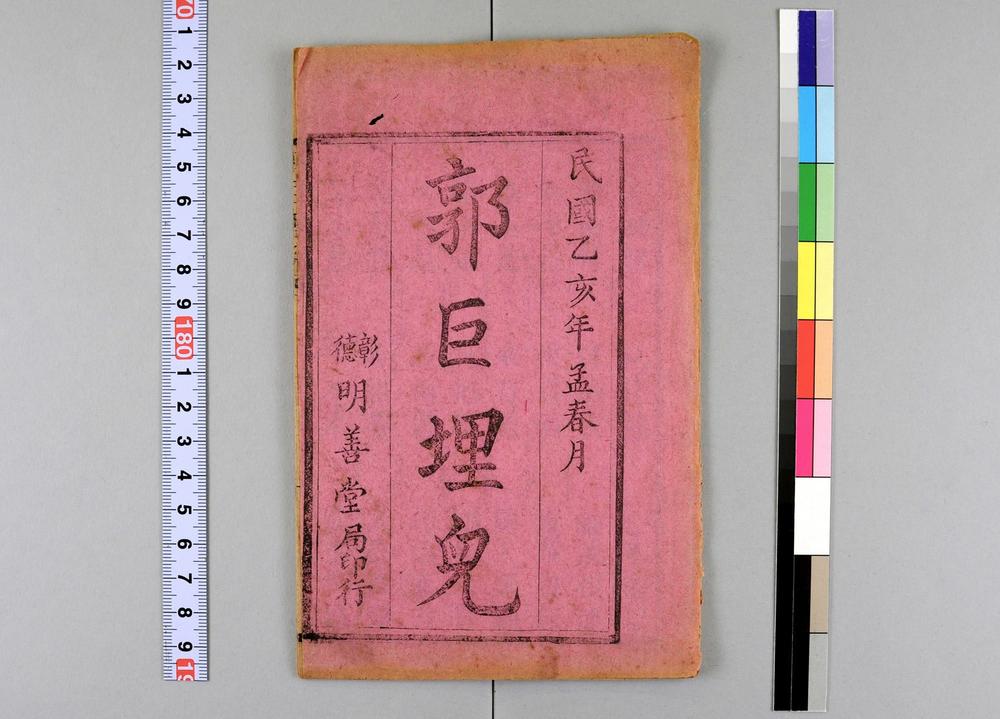 民國乙亥年孟春月
郭巨埋兒
彰德明善堂局印行
70 1 2 3 4 5 6 7 8 9 180 1 2 3 4 5 6 7 8 9 19